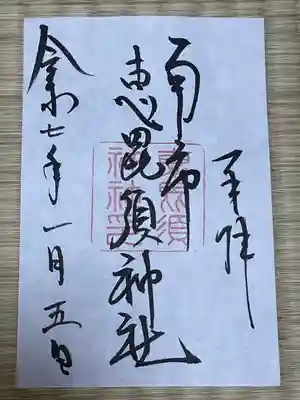 奉拝
南市
恵毘須神社
令和七年一月五日